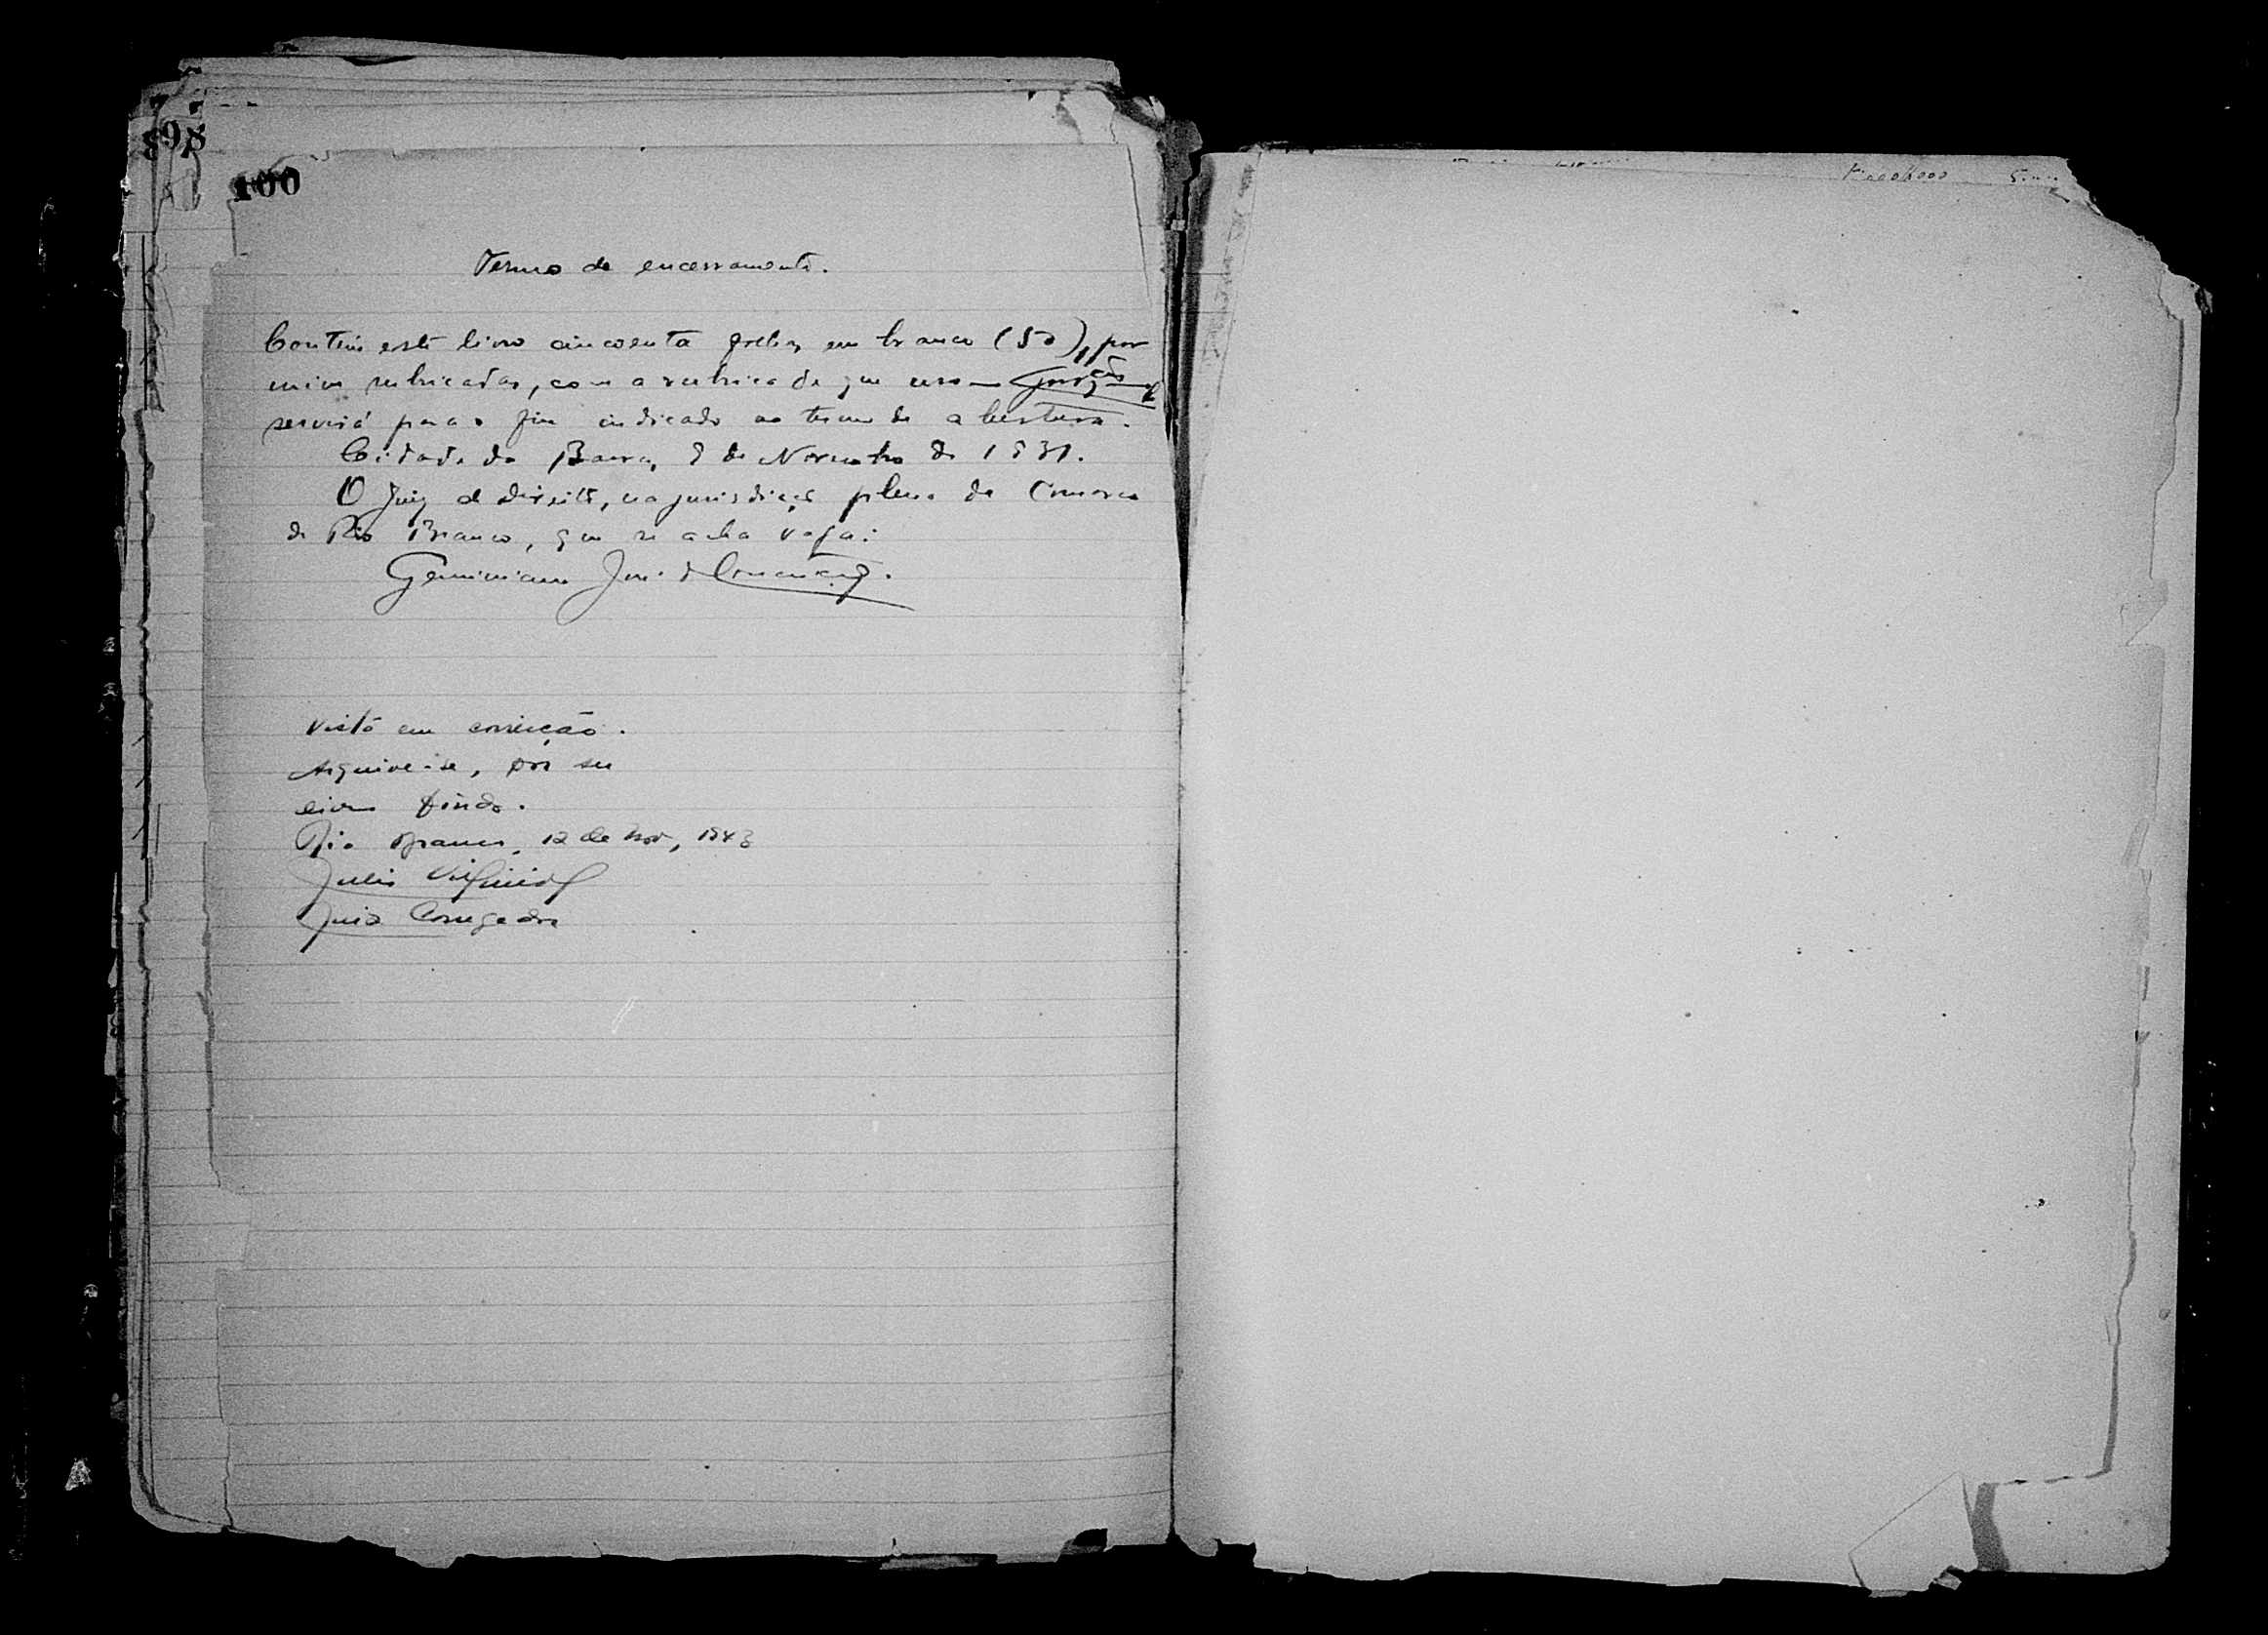 98
100
Termo de encerramento.
Contem este livro cincoenta folhas em branco (50), por
mim rubricadas, com a rubrica de que uso
servirá para o fim indicado no termo de abertura.
Cidade da Barra, 9 de Novembro de 1931.
O Juiz de direito, na jurisdicção plena da Comarca
de Rio Branco, que se acha vaga:
Geminiano José da Conceição.
Visto em correição.
Archive-se, por ser
livro findo.
Rio Branco, 12 de Nov, 1943
Julio Virginio
Juiz Corregedor